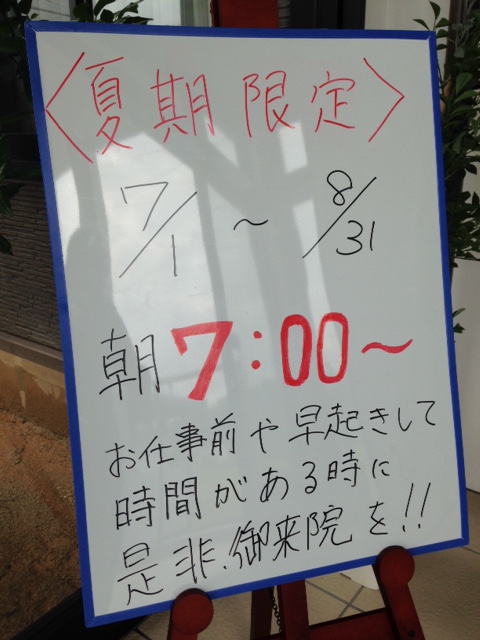 〈夏期限定〉
7/1 ~ 8/31
朝7:00~
お仕事前や早起きして
時間がある時に
是非、御来院を!!